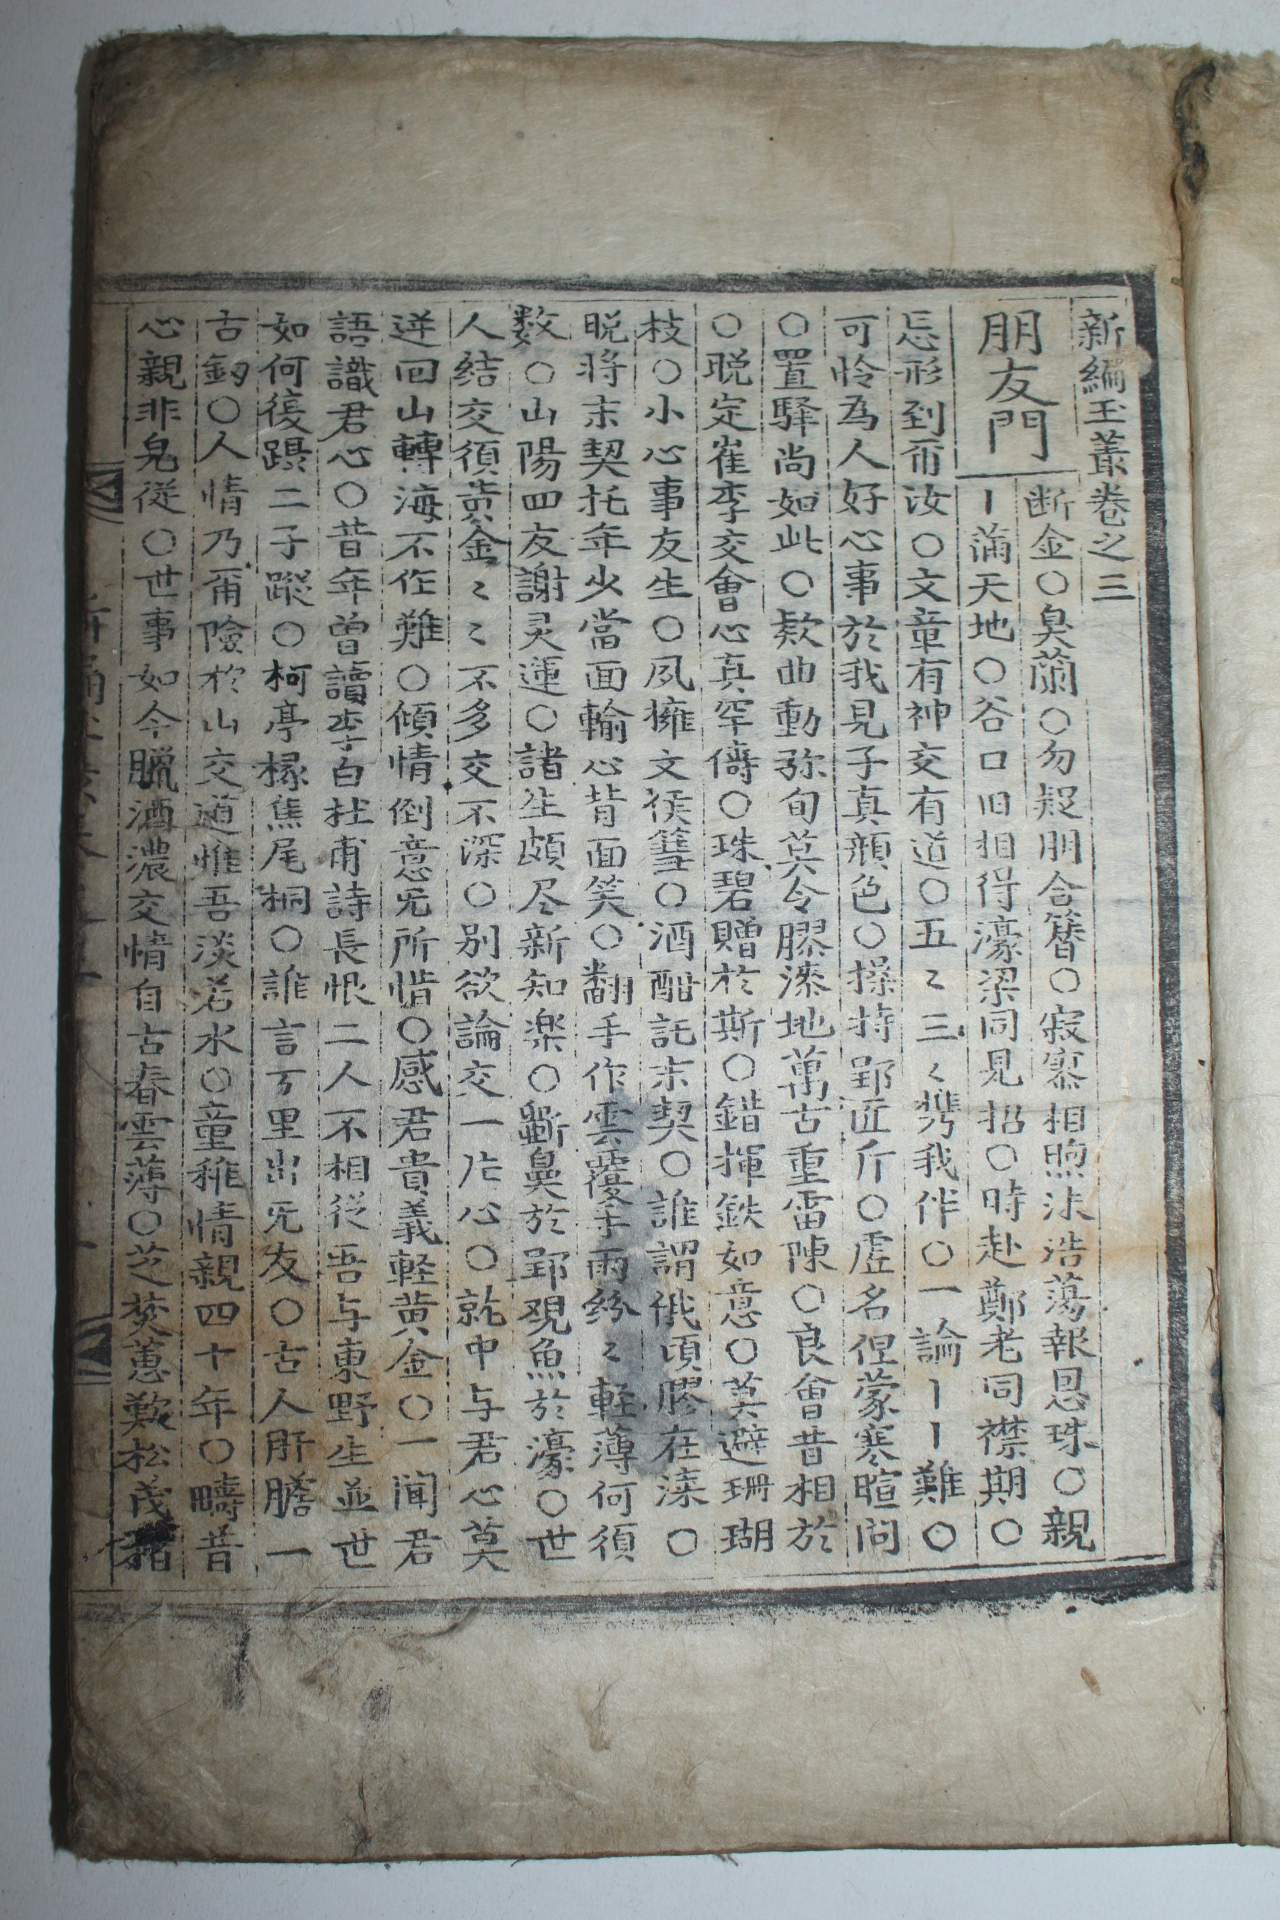 新編玉叢卷之三
朋友門
断金○臭蘭○勿疑朋合簪○寂寥相煦沫浩蕩報恩珠○親
〡滿天地○谷口旧相得濠梁同見招○時赴鄭老同襟期○
忘形到甭汝○文章有神交有道○五〻三〻携我伴○一論〡〡難○
可怜為人好心事於我見子真顔色○操持郢匠斤○虚名但蒙寒暄问
○置驿尚如此○欵曲動弥旬莫令膠漆地萬古重雷陳○良會昔相於
○晩定崔李交會心真罕儔○珠碧贈於斯○錯揮鉄如意○莫避珊瑚
枝○小心事友生○夙擁文侯篲○酒酣託末契○誰謂俄頃膠在漆○
晩将末契托年少當面輸心背面笑○翻手作雲覆手雨紛〻軽薄何須
数○山陽四友謝灵運○諸生頗尽新知楽○斲鼻於郢观魚於濠○世
人结交須黄金〻〻不多交不深○别欲論交一片心○就中与君心莫
逆回山轉海不作難○傾情倒意旡所惜○感君貴義軽黄金○一闻君
語識君心○昔年曽讀李白杜甫詩長恨二人不相従吾与東野生並世
如何復躡二子蹤○柯亭椽焦尾桐○誰言万里出旡友○古人肝膽一
古釰○人情乃甭險於山交道惟吾淡若水○童稚情親四十年○疇昔
心親非皃従○世事如今臘酒濃交情自古春雲薄○芝焚蕙歎松茂栢